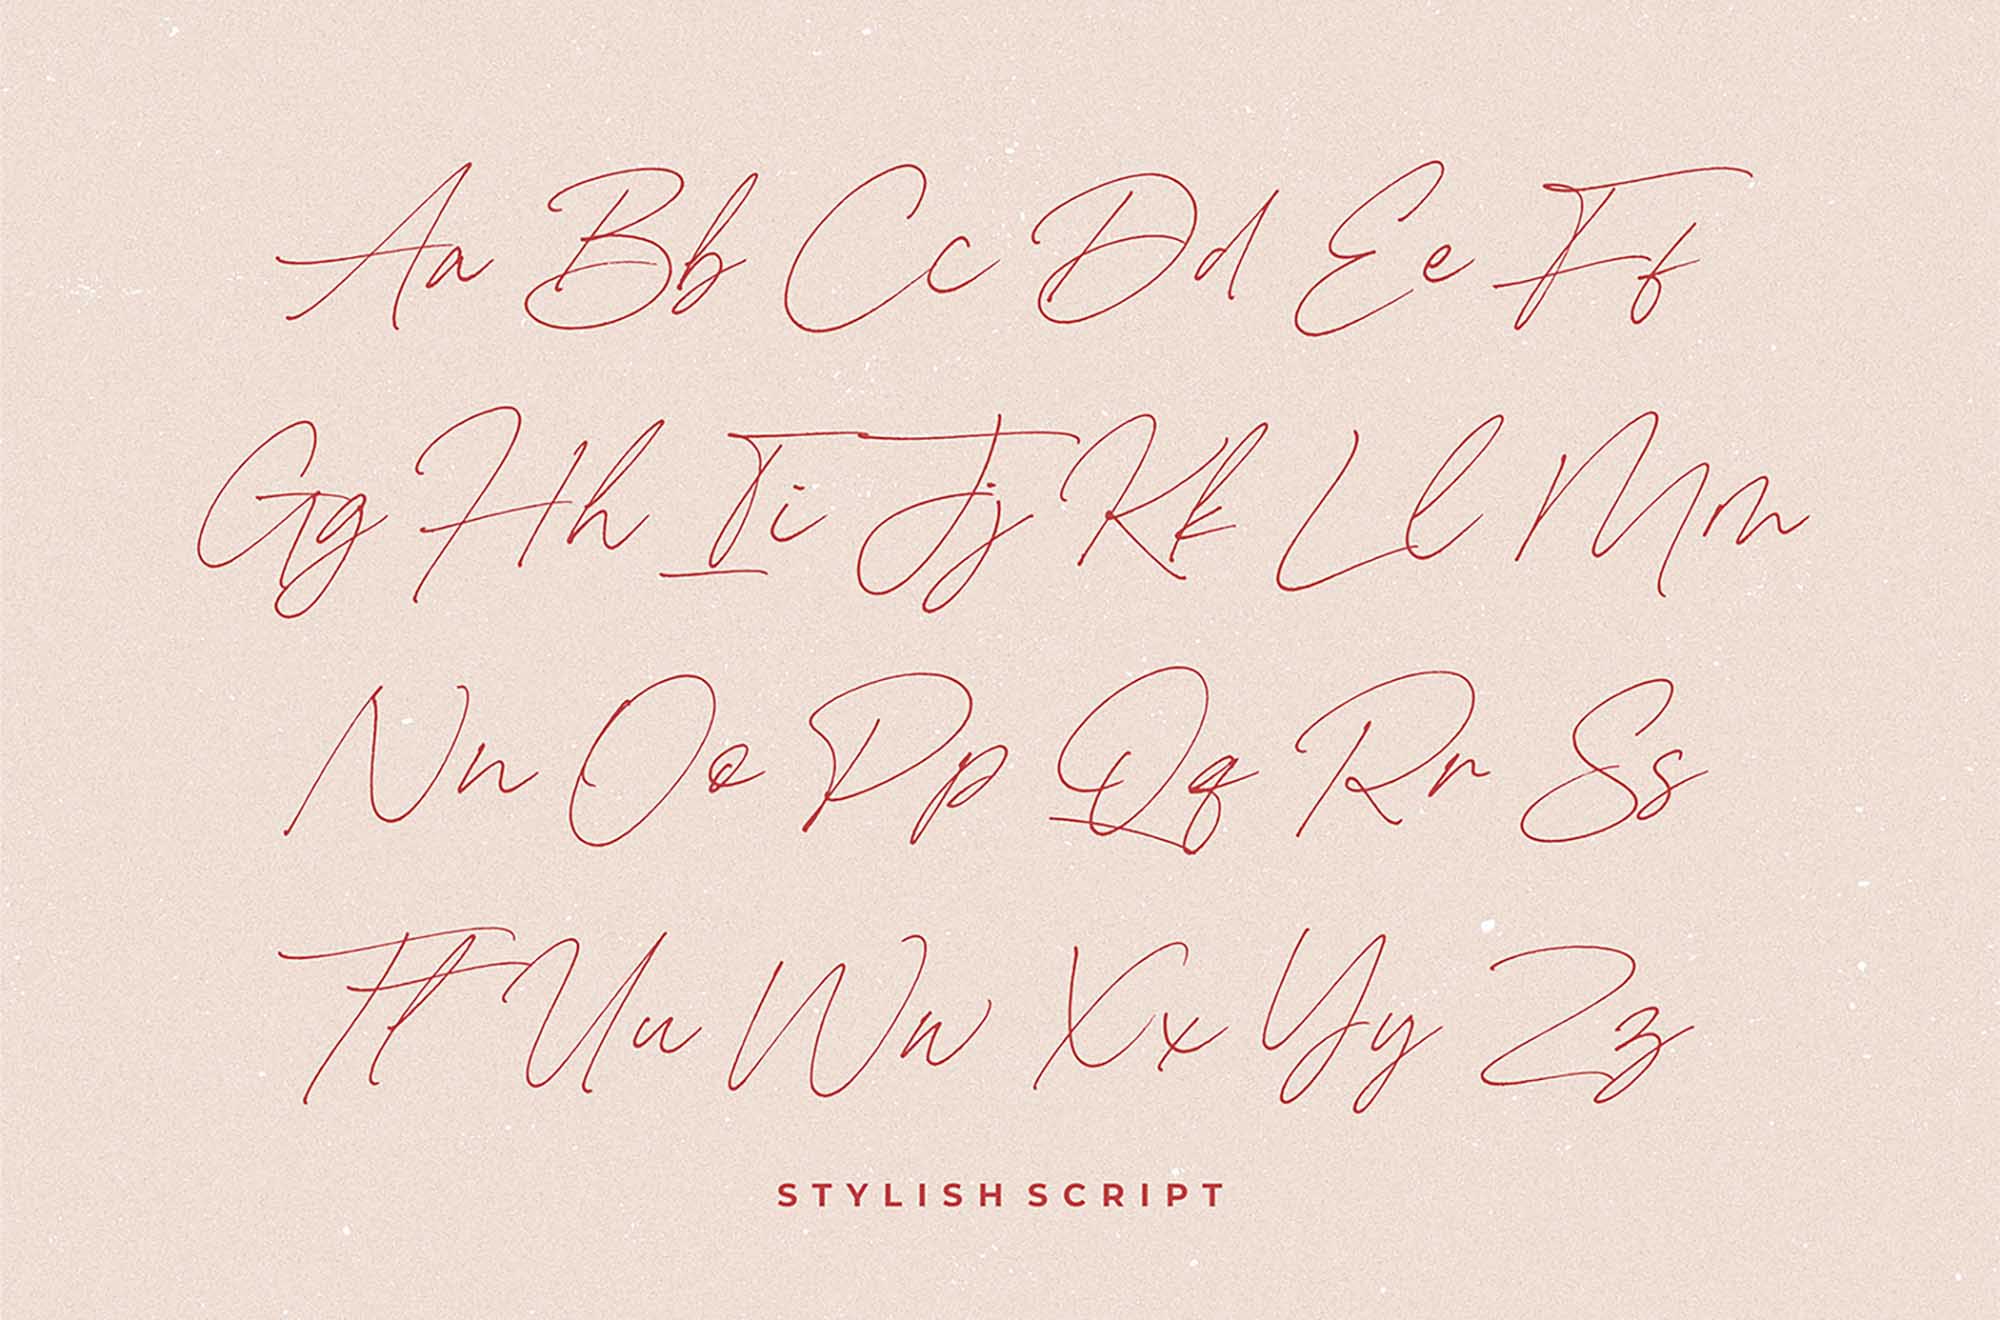 Aa Bb Cc Dd Ee Ff
Gg Hh Ii Jj Kk Ll Mm
Nn Oo Pp Qq Rr Ss
Tt Uu Ww Xx Yy Zz
STYLISH SCRIPT